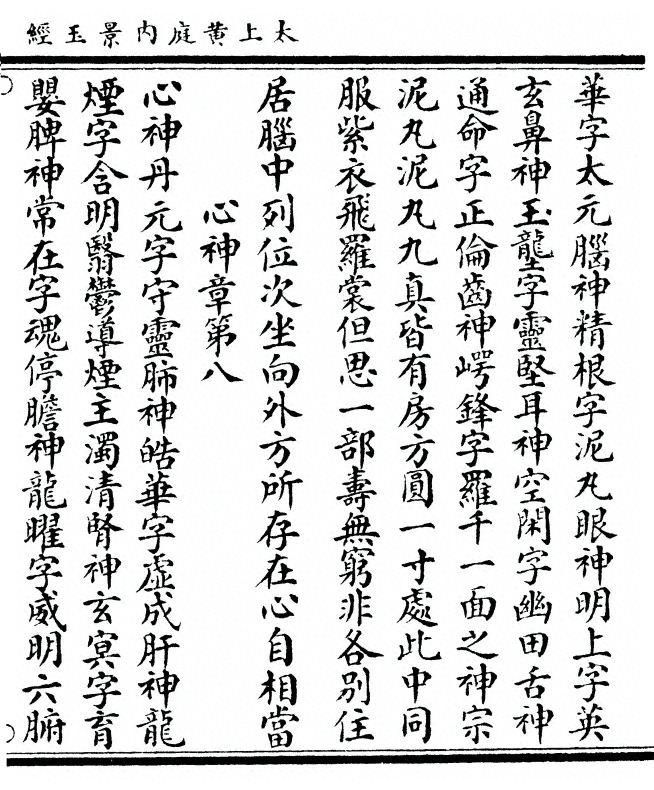 太上黄庭内景玉經
華字太元腦神精根字泥丸眼神明上字英
玄鼻神玉壟字靈堅耳神空閑字幽田舌神
通命字正倫齒神崿鋒字羅千一面之神宗
泥丸泥丸九真皆有房方圓一寸處此中同
服紫衣飛羅裳但思一部壽無窮非各别住
居腦中列位次坐向外方所存在心自相當
心神章第八
心神丹元字守靈肺神皓華字虛成肝神龍
煙字含明翳鬱導煙主濁清腎神玄冥字育
嬰脾神常在字魂停膽神龍曜字威明六腑